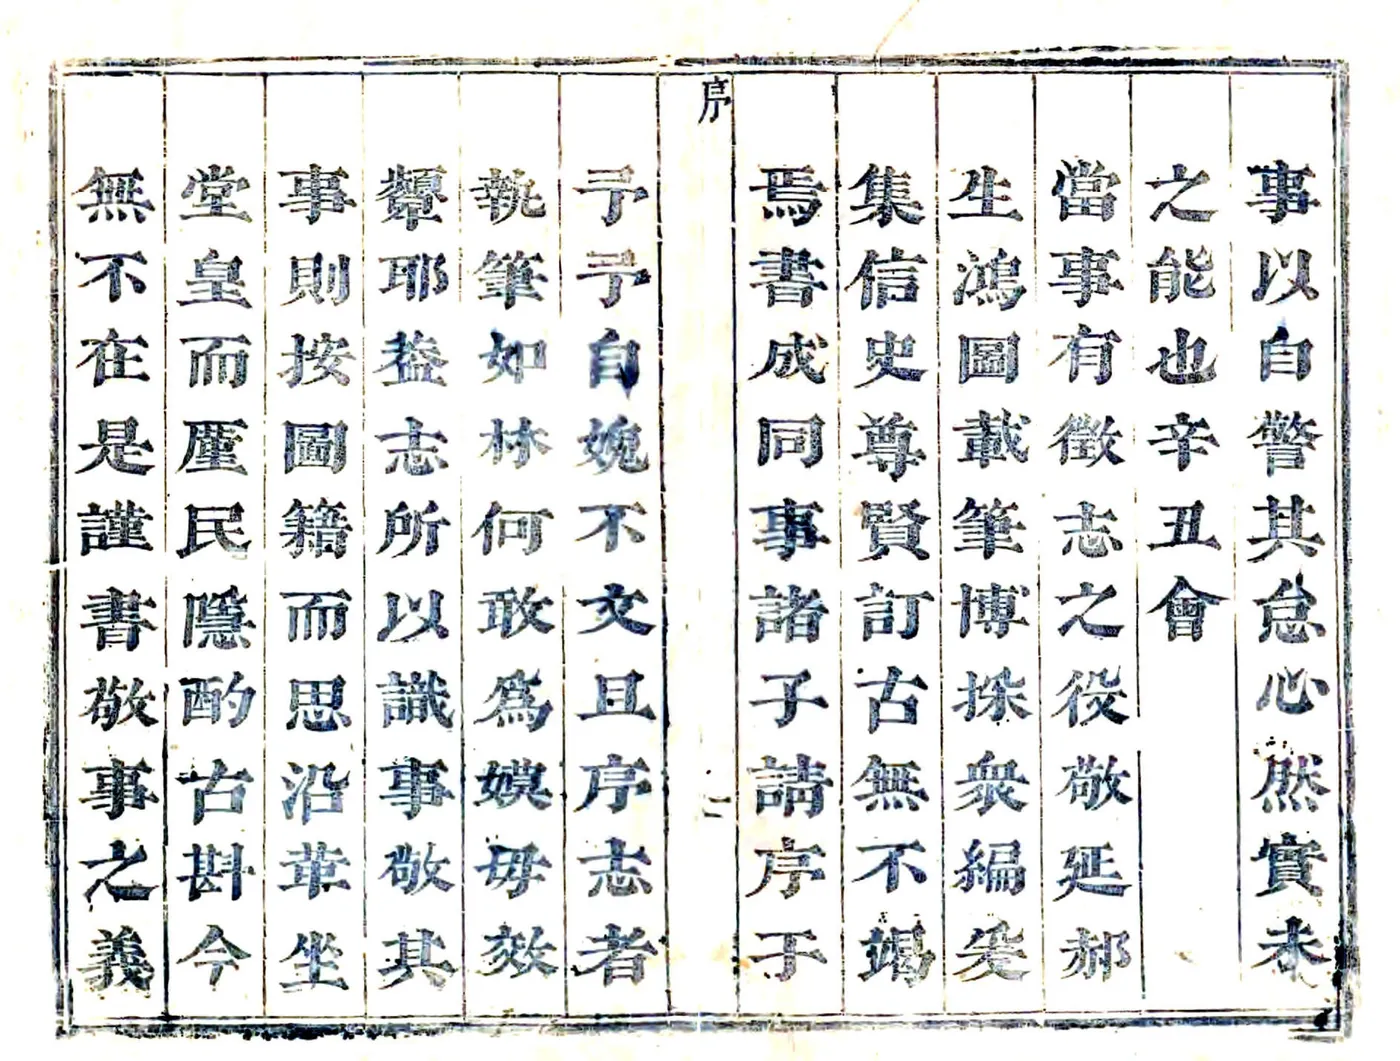 事以自警其怠心然實未
之能也辛丑會
當事有徵志之役敬延郝
生鴻圖載筆博採衆編爰
集信史尊賢訂古無不竭
焉書成同事諸子請序于
序
二
予予自媿不文且序志者
執筆如林何敢爲嫫母效
顰耶葢志所以識事敬其
事則按圖籍而思沿革坐
堂皇而廑民隱酌古斟今
無不在是謹書敬事之義